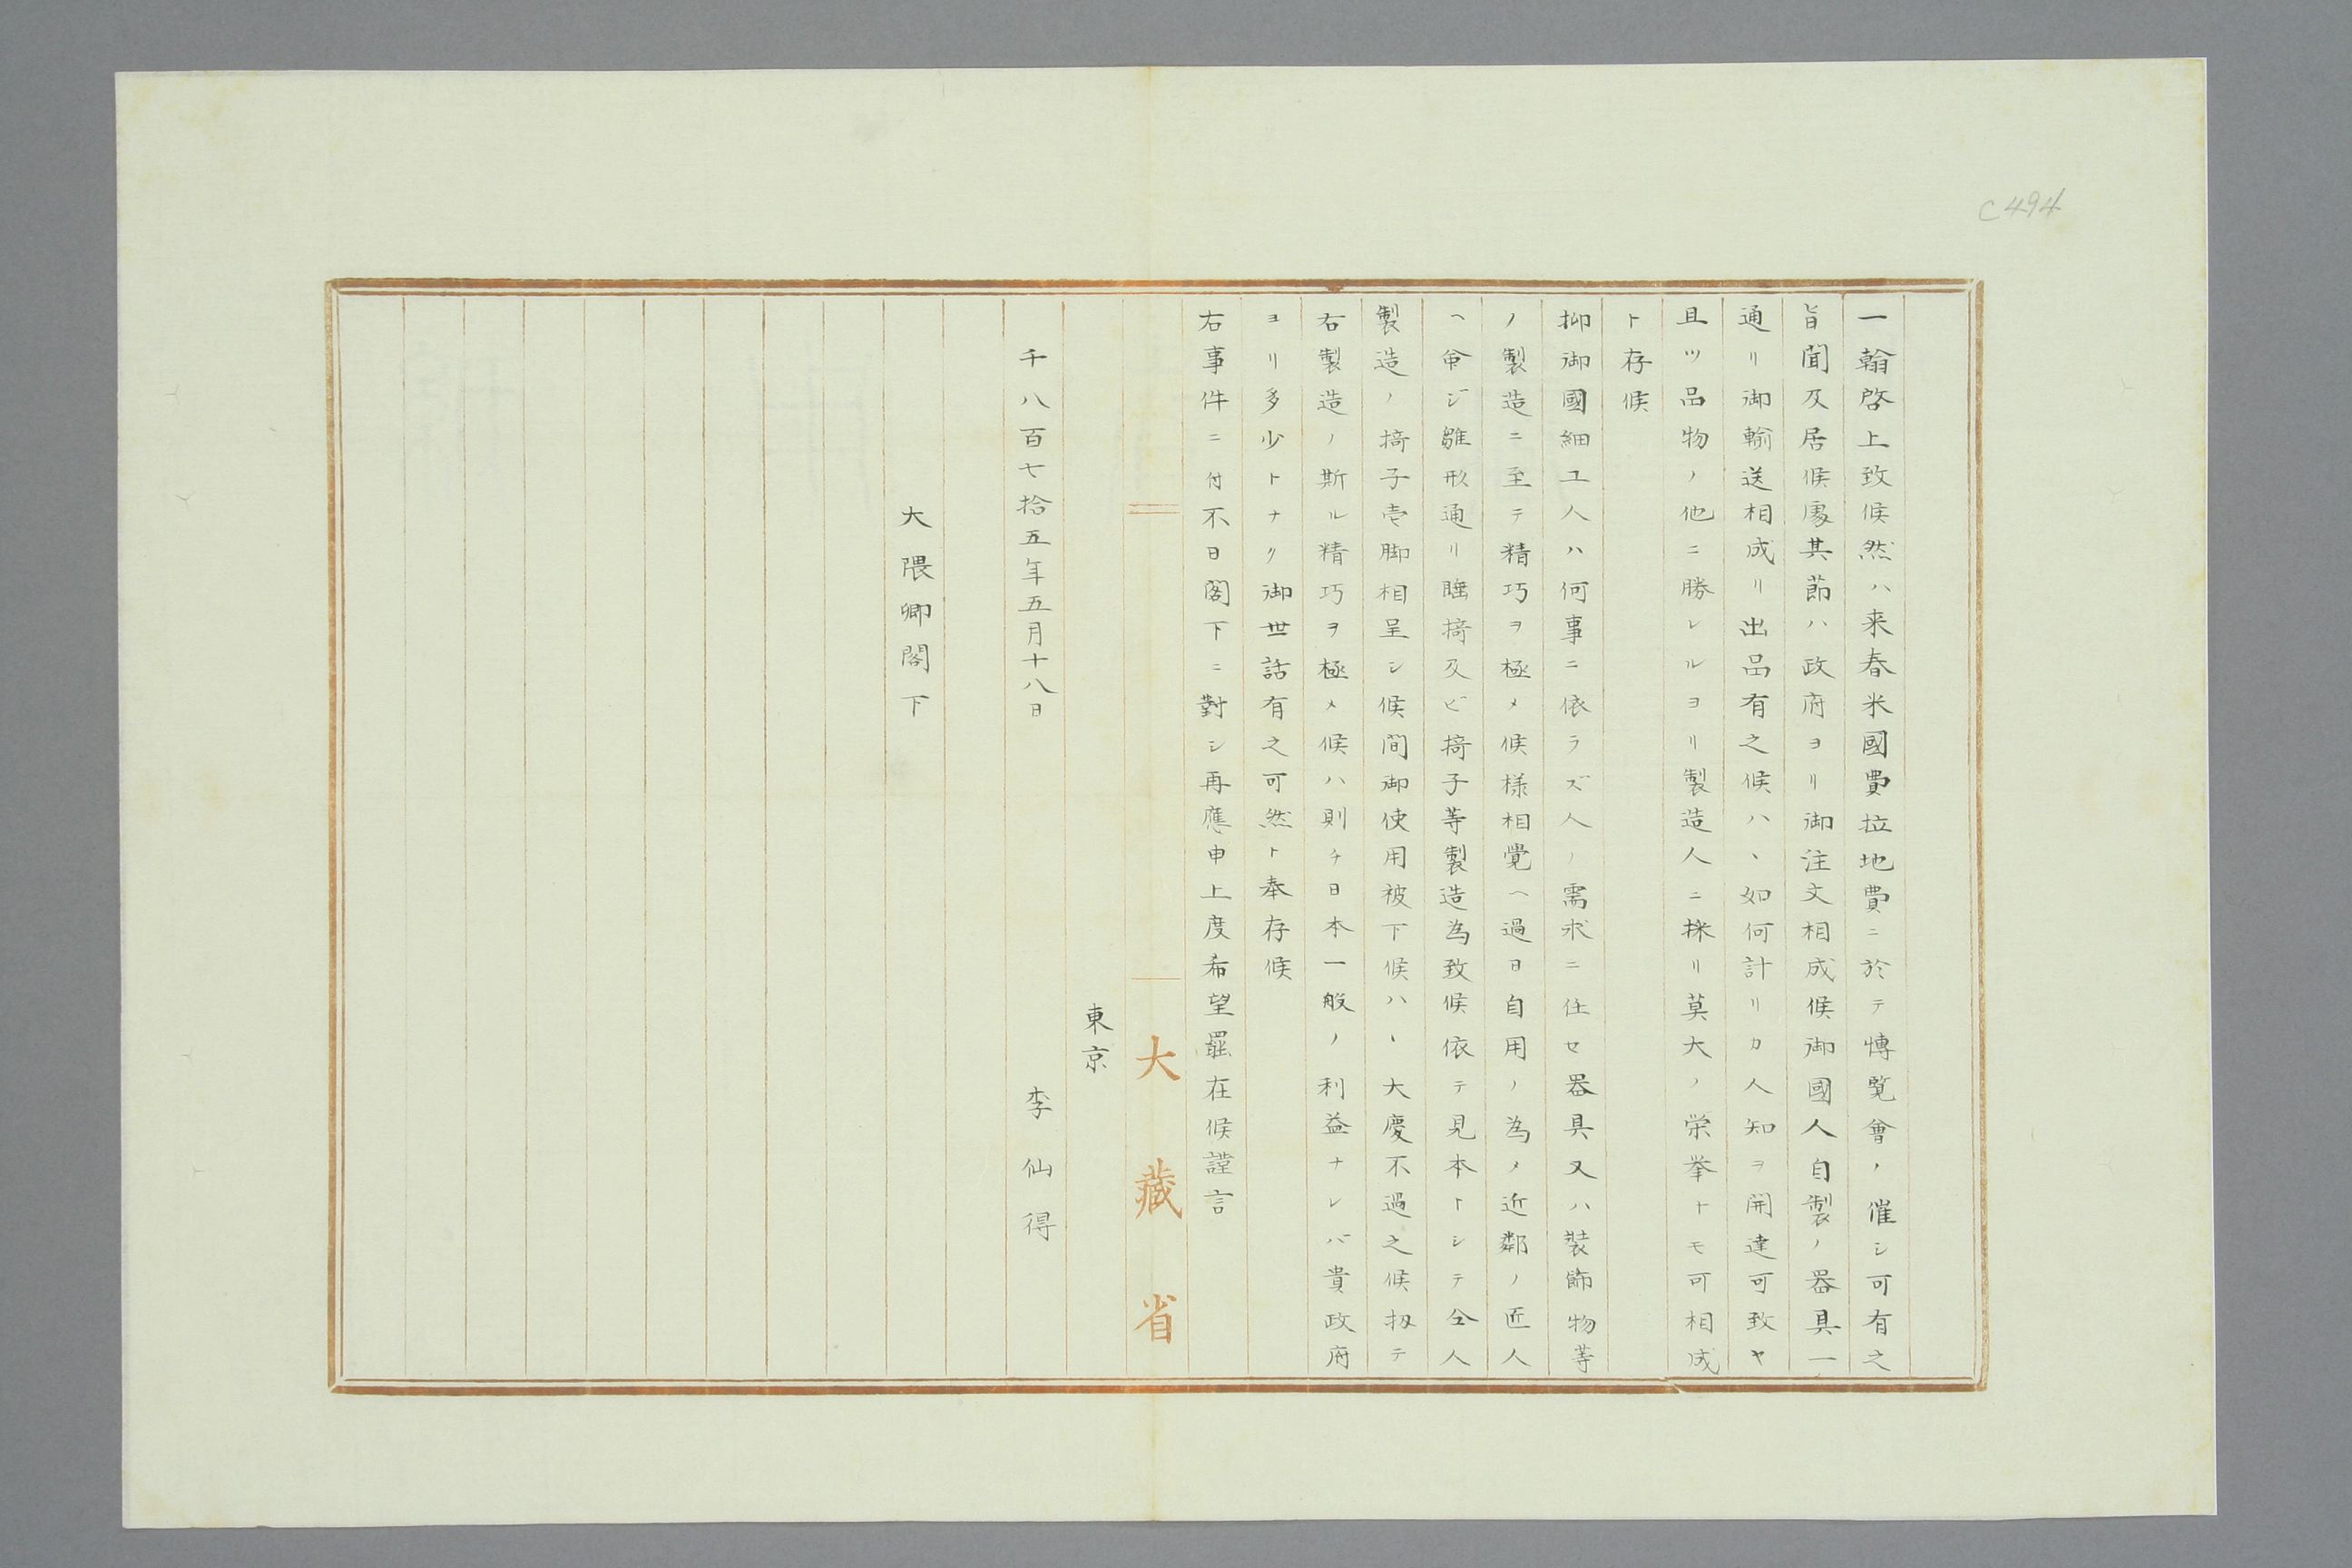 C494
一翰啓上致候然ハ来春米國費拉地費ニ於テ博覧會ノ催シ可有之
旨聞及居候處其節ハ政府ヨリ御注文相成候御國人自製ノ器具一
通リ御輸送相成リ出品有之候ハヽ如何計リカ人知ヲ開達可致ヤ
且ツ品物ノ他ニ勝レルヨリ製造人ニ採リ莫大ノ栄挙トモ可相成
ト存候
抑御國細工人ハ何事ニ依ラズ人ノ需求ニ任セ器具又ハ裝飾物等
ノ製造ニ至テ精巧ヲ極メ候様相覺ヘ過日自用ノ為メ近鄰ノ匠人
ヘ命ジ雛形通リ睡掎及ビ掎子等製造為致候依テ見本トシテ仝人
製造ノ掎子壱脚相呈シ候間御使用被下候ハヽ大慶不過之候扨テ
右製造ノ斯ル精巧ヲ極メ候ハ則チ日本一般ノ利益ナレバ貴政府
ヨリ多少トナク御世話有之可然ト奉存候
右事件ニ付不日閣下ニ對シ再應申上度希望罷在候謹言
大藏省
東京
李仙得
千八百七拾五年五月十八日
大隈卿閣下